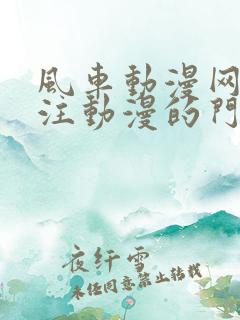 風車動漫网
注動漫的門
夜纤雪
未经同意禁止转载